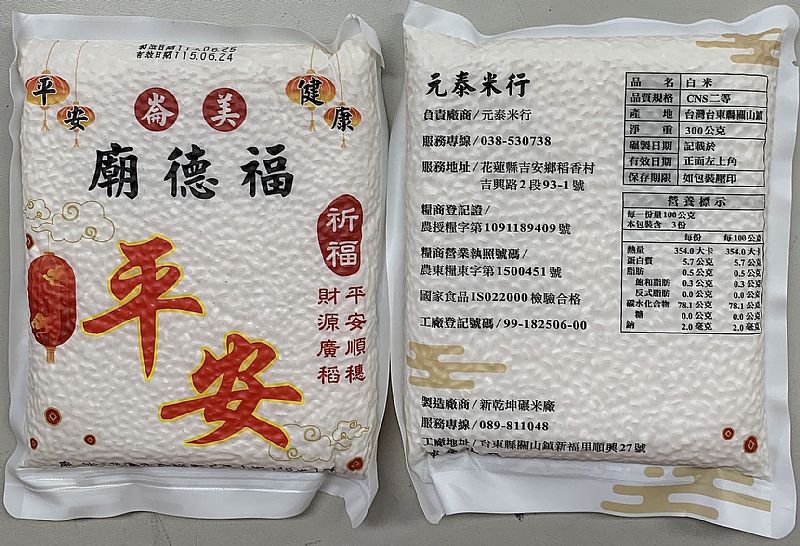 有效日期115.06.24
平安
健康
美崙
福德廟
祈福
平安順穗
財源廣稻
平安
元泰米行
負責廠商/元泰米行
服務專線/038-530738
服務地址/花蓮縣吉安鄉稻香村
吉興路2段93-1號
糧商登記證/
農授糧字第1091189409號
糧商營業執照號碼/
農東糧東字第1500451號
國家食品ISO22000檢驗合格
工廠登記號碼/99-182506-00
製造廠商/新乾坤碾米廠
服務專線/089-811048
工廠地址/台東縣關山鎮新福里順興27號
品名 白米
品質規格 CNS二等
產地 台灣台東縣關山鎮
淨重 300公克
礱製日期 記載於
有效日期 正面左上角
保存期限 如包裝壓印
營養標示
每一份量100公克
本包裝含 3份
每份 每100公克
熱量 354.0大卡 354.0大卡
蛋白質 5.7公克 5.7公克
脂肪 0.5公克 0.5公克
飽和脂肪 0.3公克 0.3公克
反式脂肪 0.0公克 0.0公克
碳水化合物 78.1公克 78.1公克
糖 0.0公克 0.0公克
鈉 2.0毫克 2.0毫克